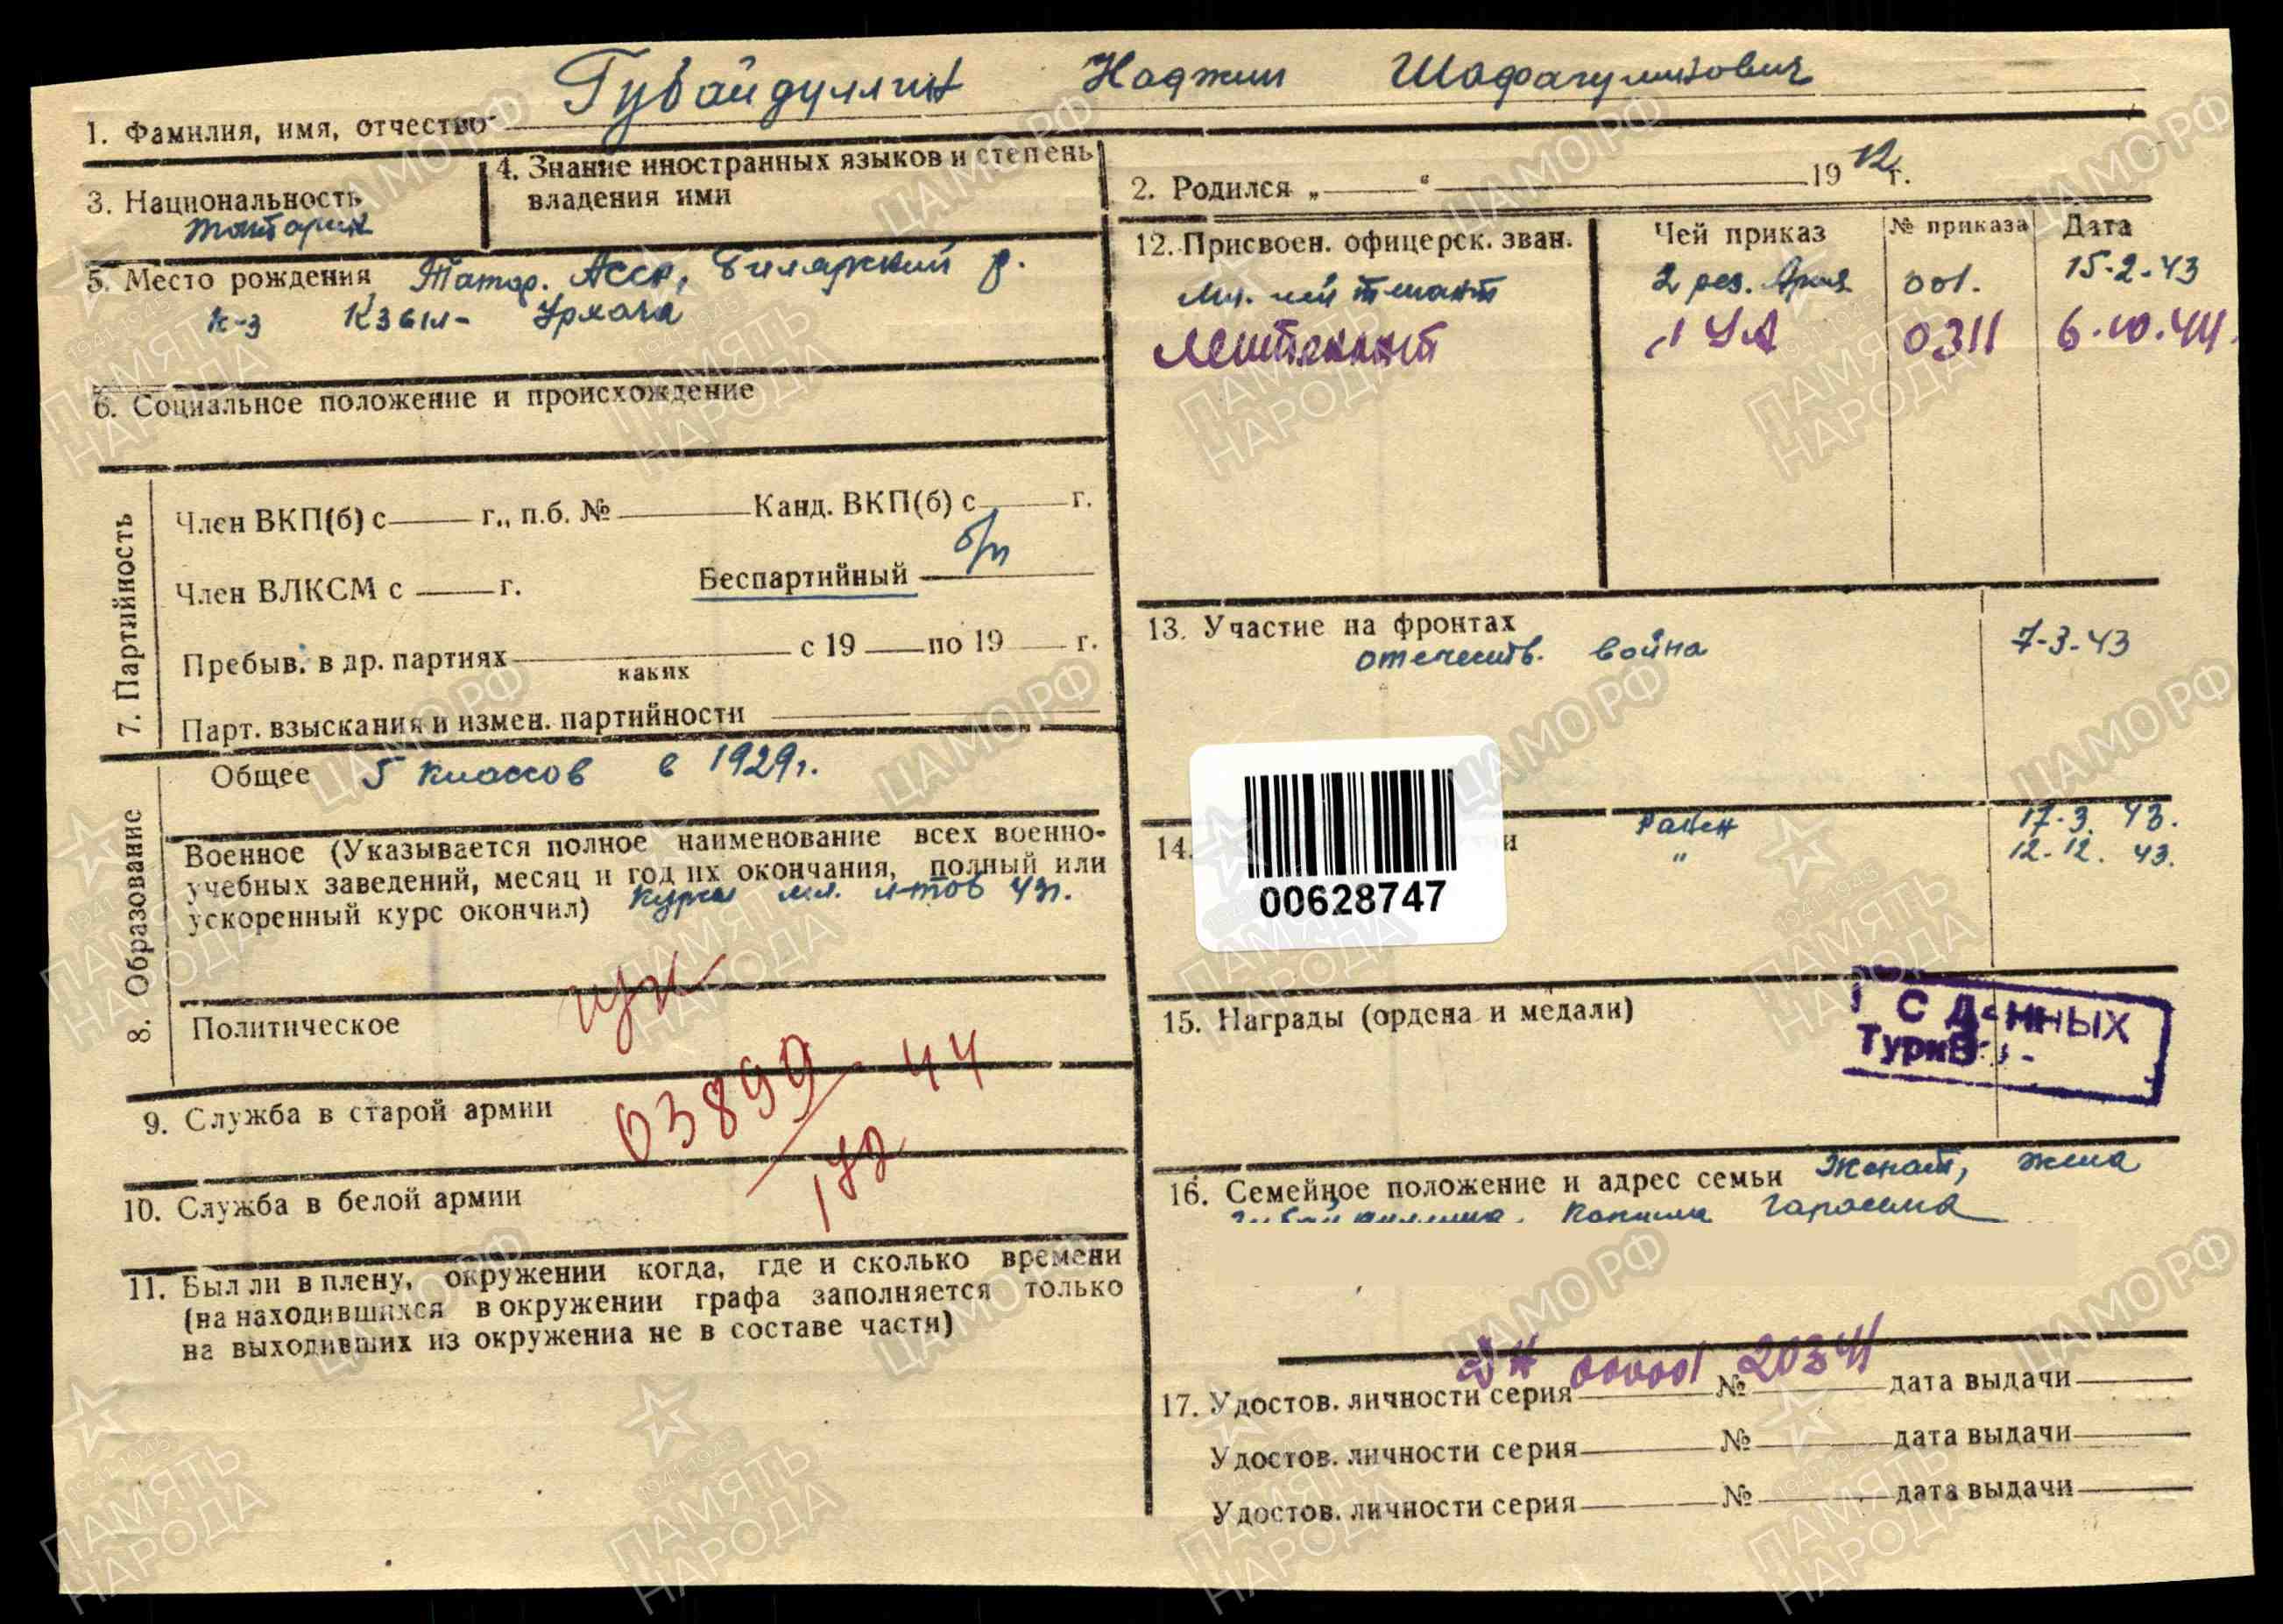 1. Фамилия, имя, отчество Губайдуллин Наджип
2. Родился „ “ 1912 г.
3. Национальность татарин
4. Знание иностранных языков и степень
владения ими
5. Место рождения Татар. Асср, Билярский р.
к-з Кзыл-
6. Социальное положение и происхождение
7. Партийность
Член ВКП(б) с г., п.б. № Канд. ВКП(б) с г.
Член ВЛКСМ с г. Беспартийный б/п
Пребыв. в др. партиях с 19 по 19 г.
каких
Парт. взыскания и измен. партийности
8. Образование
Общее 5 классов в 1929 г.
Военное (Указывается полное наименование всех военно-
учебных заведений, месяц и год их окончания, полный или
ускоренный курс окончил) Курсы мл. л-тов 43г.
Политическое
03899 - 44
172
9. Служба в старой армии
10. Служба в белой армии
11. Был ли в плену, окружении когда, где и сколько времени
(на находившихся в окружении графа заполняется только
на выходивших из окружения не в составе части)
12. Присвоен. офицерск. зван. Чей приказ № приказа Дата
мл. лейтенант 2 рез. Армия 001. 15-2-43
Лейтенант 1 УА 0311 6.10.44.
13. Участие на фронтах
отечеств. война 7-3-43
14. и Ранен 17-3. 43.
" 12-12. 43.
00628747
15. Награды (ордена и медали)
С ДАННЫХ
ТуркВ
16. Семейное положение и адрес семьи Женат, жена
Губайдуллина,
17. Удостов. личности серия 00001 № 20341 дата выдачи
Удостов. личности серия № дата выдачи
Удостов. личности серия № дата выдачи
ЦАМО.РФ
ПАМЯТЬ
НАРОДА
1941-1945